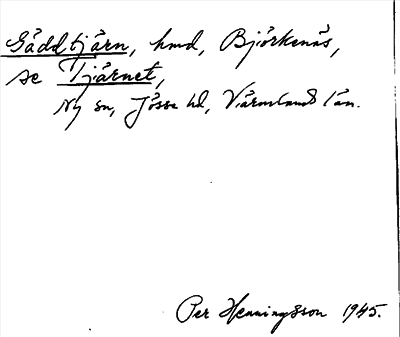 Gäddtjärn, hmd, Björkenäs,
se Tjärnet,
Ny sn, Jösse hd, Värmlands län.
Per Henningsson 1945.